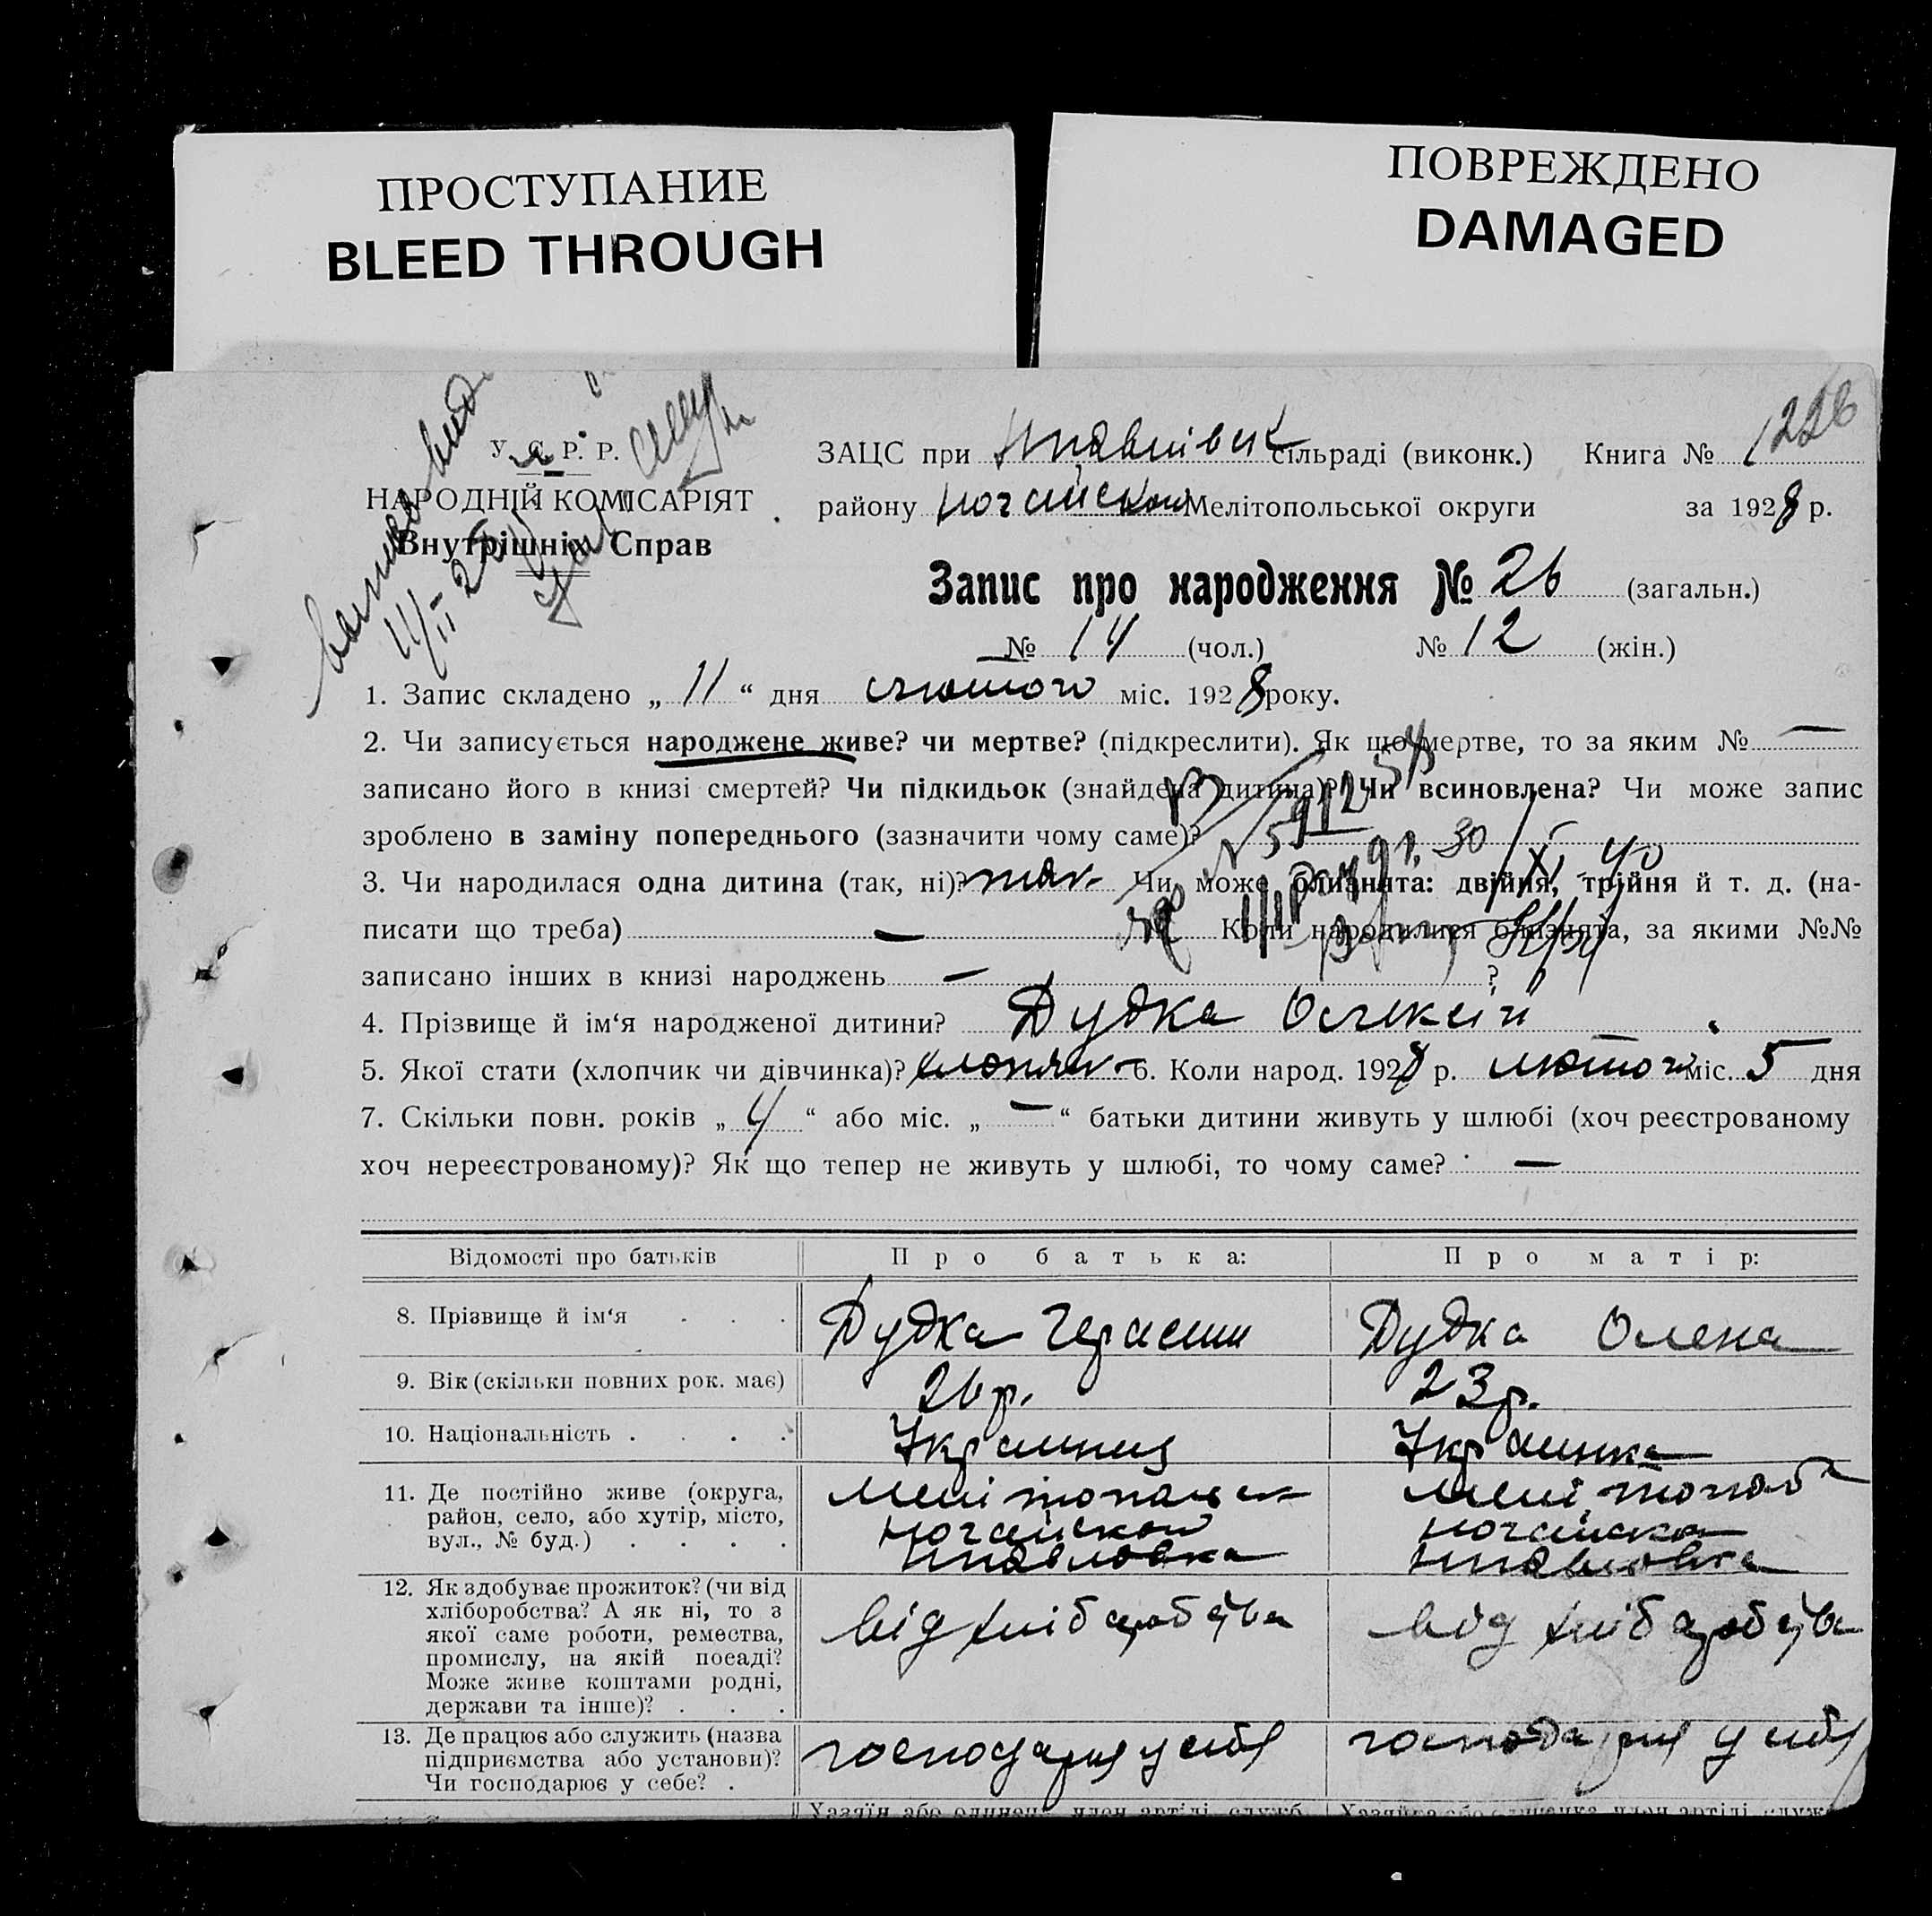 ПРОСТУПАНИЕ
BLEED THROUGH
ПОВРЕЖДЕНО
DAMAGED
У. С. Р. Р.
НАРОДНІЙ КОМІСАРІЯТ
Внутрішніх Справ
ЗАЦС при сільраді (виконк.) Книга №
району Мелітопольської округи за 1928 р.
Запис про народження № 26 (загальн.)
№ 14 (чол.) № 12 (жін.)
1. Запис складено „ 11 “ дня лютого міс. 1928 року.
2. Чи записується народжене живе? чи мертве? (підкреслити). Як що мертве, то за яким № —
записано його в книзі смертей? Чи підкидьок (знайдена дитина)? Чи всиновлена? Чи може запис
зроблено в заміну попереднього (зазначити чому саме)?
3. Чи народилася одна дитина (так, ні)? так Чи може близнята: двійня, трійня й т. д. (на-
писати що треба) — Коли народилися близнята, за якими №№
записано інших в книзі народжень — ?
4. Прізвище й ім‘я народженої дитини? Дудка Олексій
5. Якої стати (хлопчик чи дівчинка)? хлопчик 6. Коли народ. 1928 р. лютого міс. 5 дня
7. Скільки повн. років „ 4 “ або міс. „ — “ батьки дитини живуть у шлюбі (хоч реєстрованому
хоч нереєстрованому)? Як що тепер не живуть у шлюбі, то чому саме? —
Відомості про батьків Про батька: Про матір:
8. Прізвище й ім‘я Дудка Герасим Дудка Олена
9. Вік (скільки повних рок. має) 26 р. 23 р.
10. Національність Українец Українка
11. Де постійно живе (округа,
район, село, або хутір, місто,
вул., № буд.)
12. Як здобуває прожиток? (чи від
хліборобства? А як ні, то з
якої саме роботи, ремества,
промислу, на якій посаді?
Може живе коштами родні,
держави та інше)?
від хліборобства від хліборобства
13. Де працює або служить (назва
підприємства або установи)?
Чи господарює у себе?
господарує у себе господарує у себе